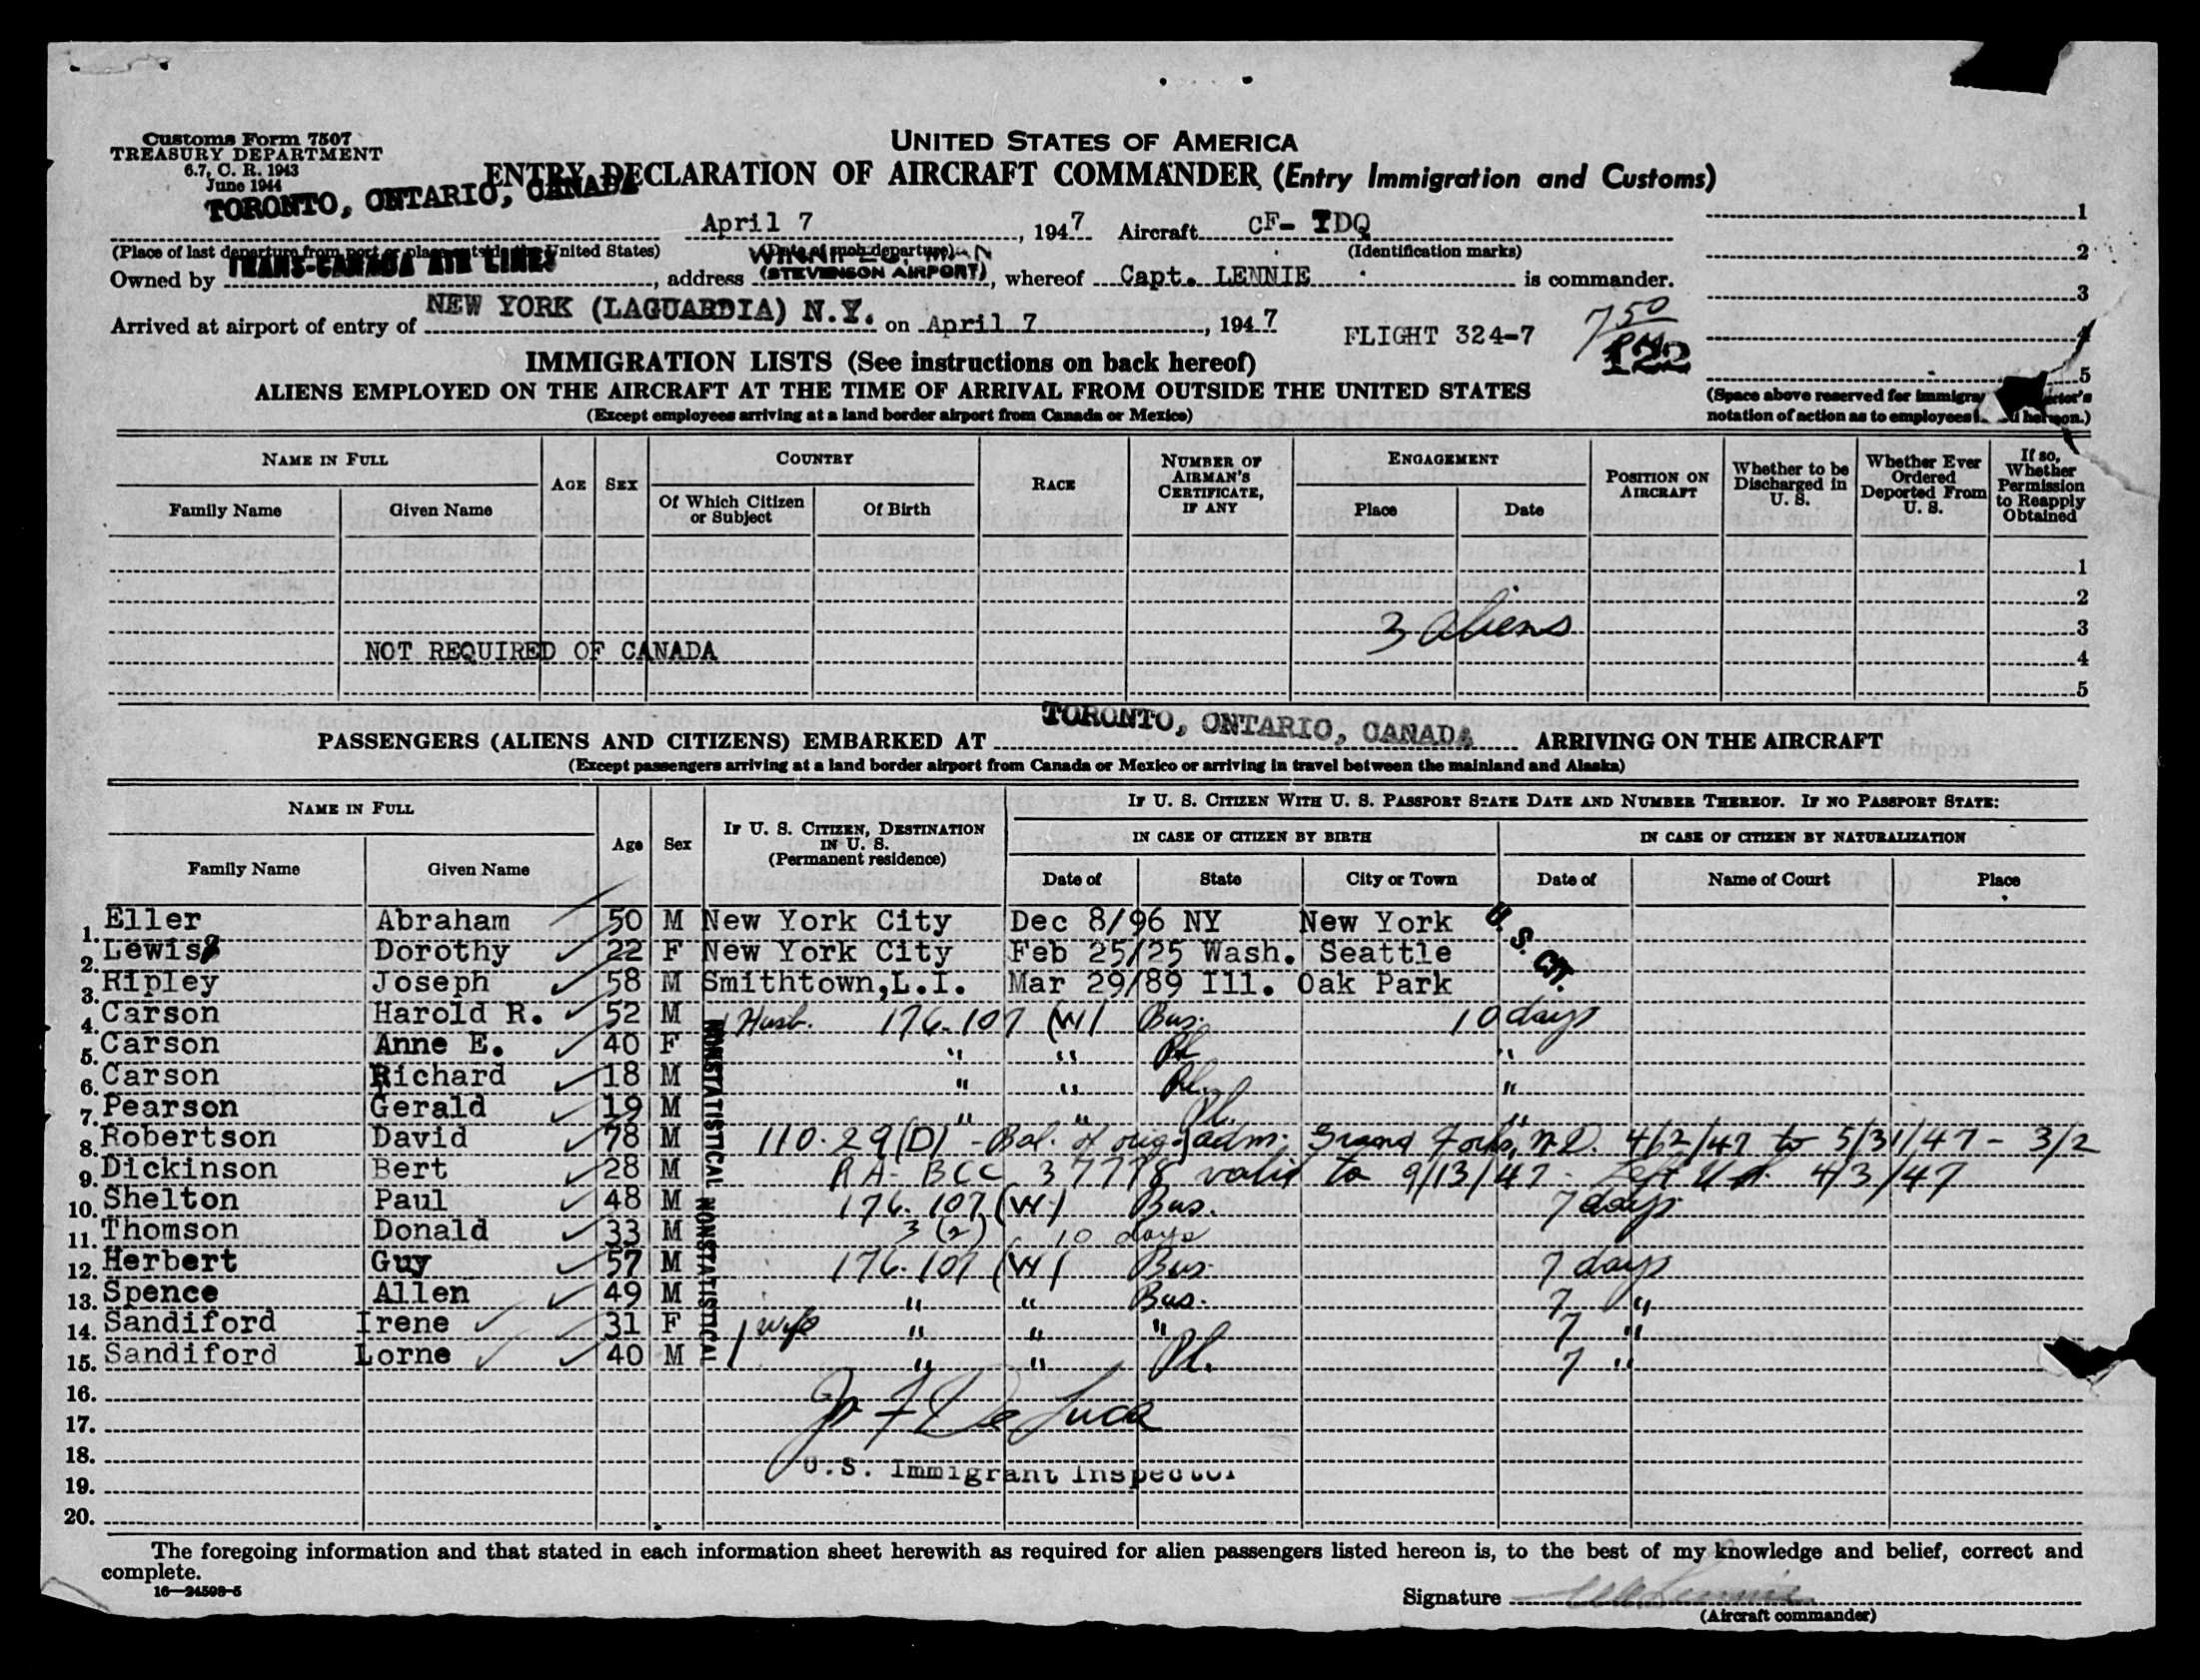 Customs Form 7507
TREASURY DEPARTMENT
6.7, C. R. 1943
June 1944
UNITED STATES OF AMERICA
ENTRY DECLARATION OF AIRCRAFT COMMANDER (Entry Immigration and Customs)
TORONTO, ONTARIO, CANADA
April 7, 1947 Aircraft CF- TDQ
(Place of last departure from port or place outside the United States) (Date of such departure) (Identification marks)
Owned by TRANS-CANADA AIR LINES, address WINNIPEG, MAN (STEVENSON AIRPORT), whereof Capt. LENNIE is commander.
Arrived at airport of entry of NEW YORK (LAGUARDIA) N.Y. on April 7, 1947
FLIGHT 324-7
7 50
PM
122
1
2
3
4
5
(Space above reserved for immigra ctor's
notation of action as to employees hereon.)
IMMIGRATION LISTS (See instructions on back hereof)
ALIENS EMPLOYED ON THE AIRCRAFT AT THE TIME OF ARRIVAL FROM OUTSIDE THE UNITED STATES
(Except employees arriving at a land border airport from Canada or Mexico)
NAME IN FULL
Family Name Given Name
AGE SEX
COUNTRY
Of Which Citizen or Subject Of Birth
RACE
NUMBER OF AIRMAN'S CERTIFICATE, IF ANY
ENGAGEMENT
Place Date
POSITION ON AIRCRAFT
Whether to be Discharged in U. S.
Whether Ever Ordered Deported From U. S.
If so, Whether Permission to Reapply Obtained
1
2
3 aliens 3
NOT REQUIRED OF CANADA 4
5
PASSENGERS (ALIENS AND CITIZENS) EMBARKED AT TORONTO, ONTARIO, CANADA ARRIVING ON THE AIRCRAFT
(Except passengers arriving at a land border airport from Canada or Mexico or arriving in travel between the mainland and Alaska)
NAME IN FULL
Family Name Given Name
Age Sex
IF U. S. CITIZEN, DESTINATION IN U. S.
(Permanent residence)
IF U. S. CITIZEN WITH U. S. PASSPORT STATE DATE AND NUMBER THEREOF. IF NO PASSPORT STATE:
IN CASE OF CITIZEN BY BIRTH IN CASE OF CITIZEN BY NATURALIZATION
Date of State City or Town Date of Name of Court Place
1. Eller Abraham 50 M New York City Dec 8/96 NY New York
2. Lewis Dorothy 22 F New York City Feb 25/25 Wash. Seattle
3. Ripley Joseph 58 M Smithtown,L.I. Mar 29/89 Ill. Oak Park
U. S. CIT.
4. Carson Harold R. 52 M Husb. 176.107 (W) Bus. 10 days
5. Carson Anne E. 40 F " " Pl. "
6. Carson Richard 18 M " " Pl. "
7. Pearson Gerald 19 M " " Pl. "
8. Robertson David 78 M 110.29(D) - Bal. of orig. adm. Grand Forks, N.D. 4/2/47 to 5/31/47 - 3/2
9. Dickinson Bert 28 M RA- BCC 37778 valid to 9/13/47 - Left U.S. 4/3/47
10. Shelton Paul 48 M 176.107 (W) Bus. 7 days
11. Thomson Donald 33 M 3 (2) 10 days
12. Herbert Guy 57 M 176.107 (W) Bus. 7 days
13. Spence Allen 49 M " " Bus. 7 "
14. Sandiford Irene 31 F wife " " " 7 "
15. Sandiford Lorne 40 M " " Pl. 7 "
NONSTATISTICAL NONSTATISTICAL
16.
17. De Luca
18. U.S. Immigrant Inspector
19.
20.
The foregoing information and that stated in each information sheet herewith as required for alien passengers listed hereon is, to the best of my knowledge and belief, correct and
complete.
16—24598-5
Signature Lennie
(Aircraft commander)